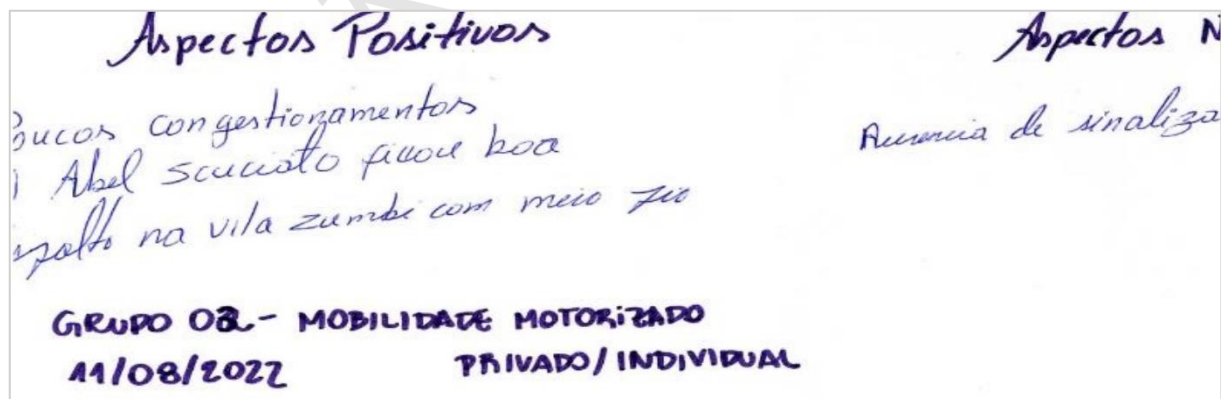 Aspectos Positivos
Aspectos N
oucos congestionamentos
Abel Scuciato ficou boa
sfalto na vila zumbi com meio fio
Ausencia de sinaliza
GRUPO 02 - MOBILIDADE MOTORIZADO
11/08/2022 PRIVADO/INDIVIDUAL